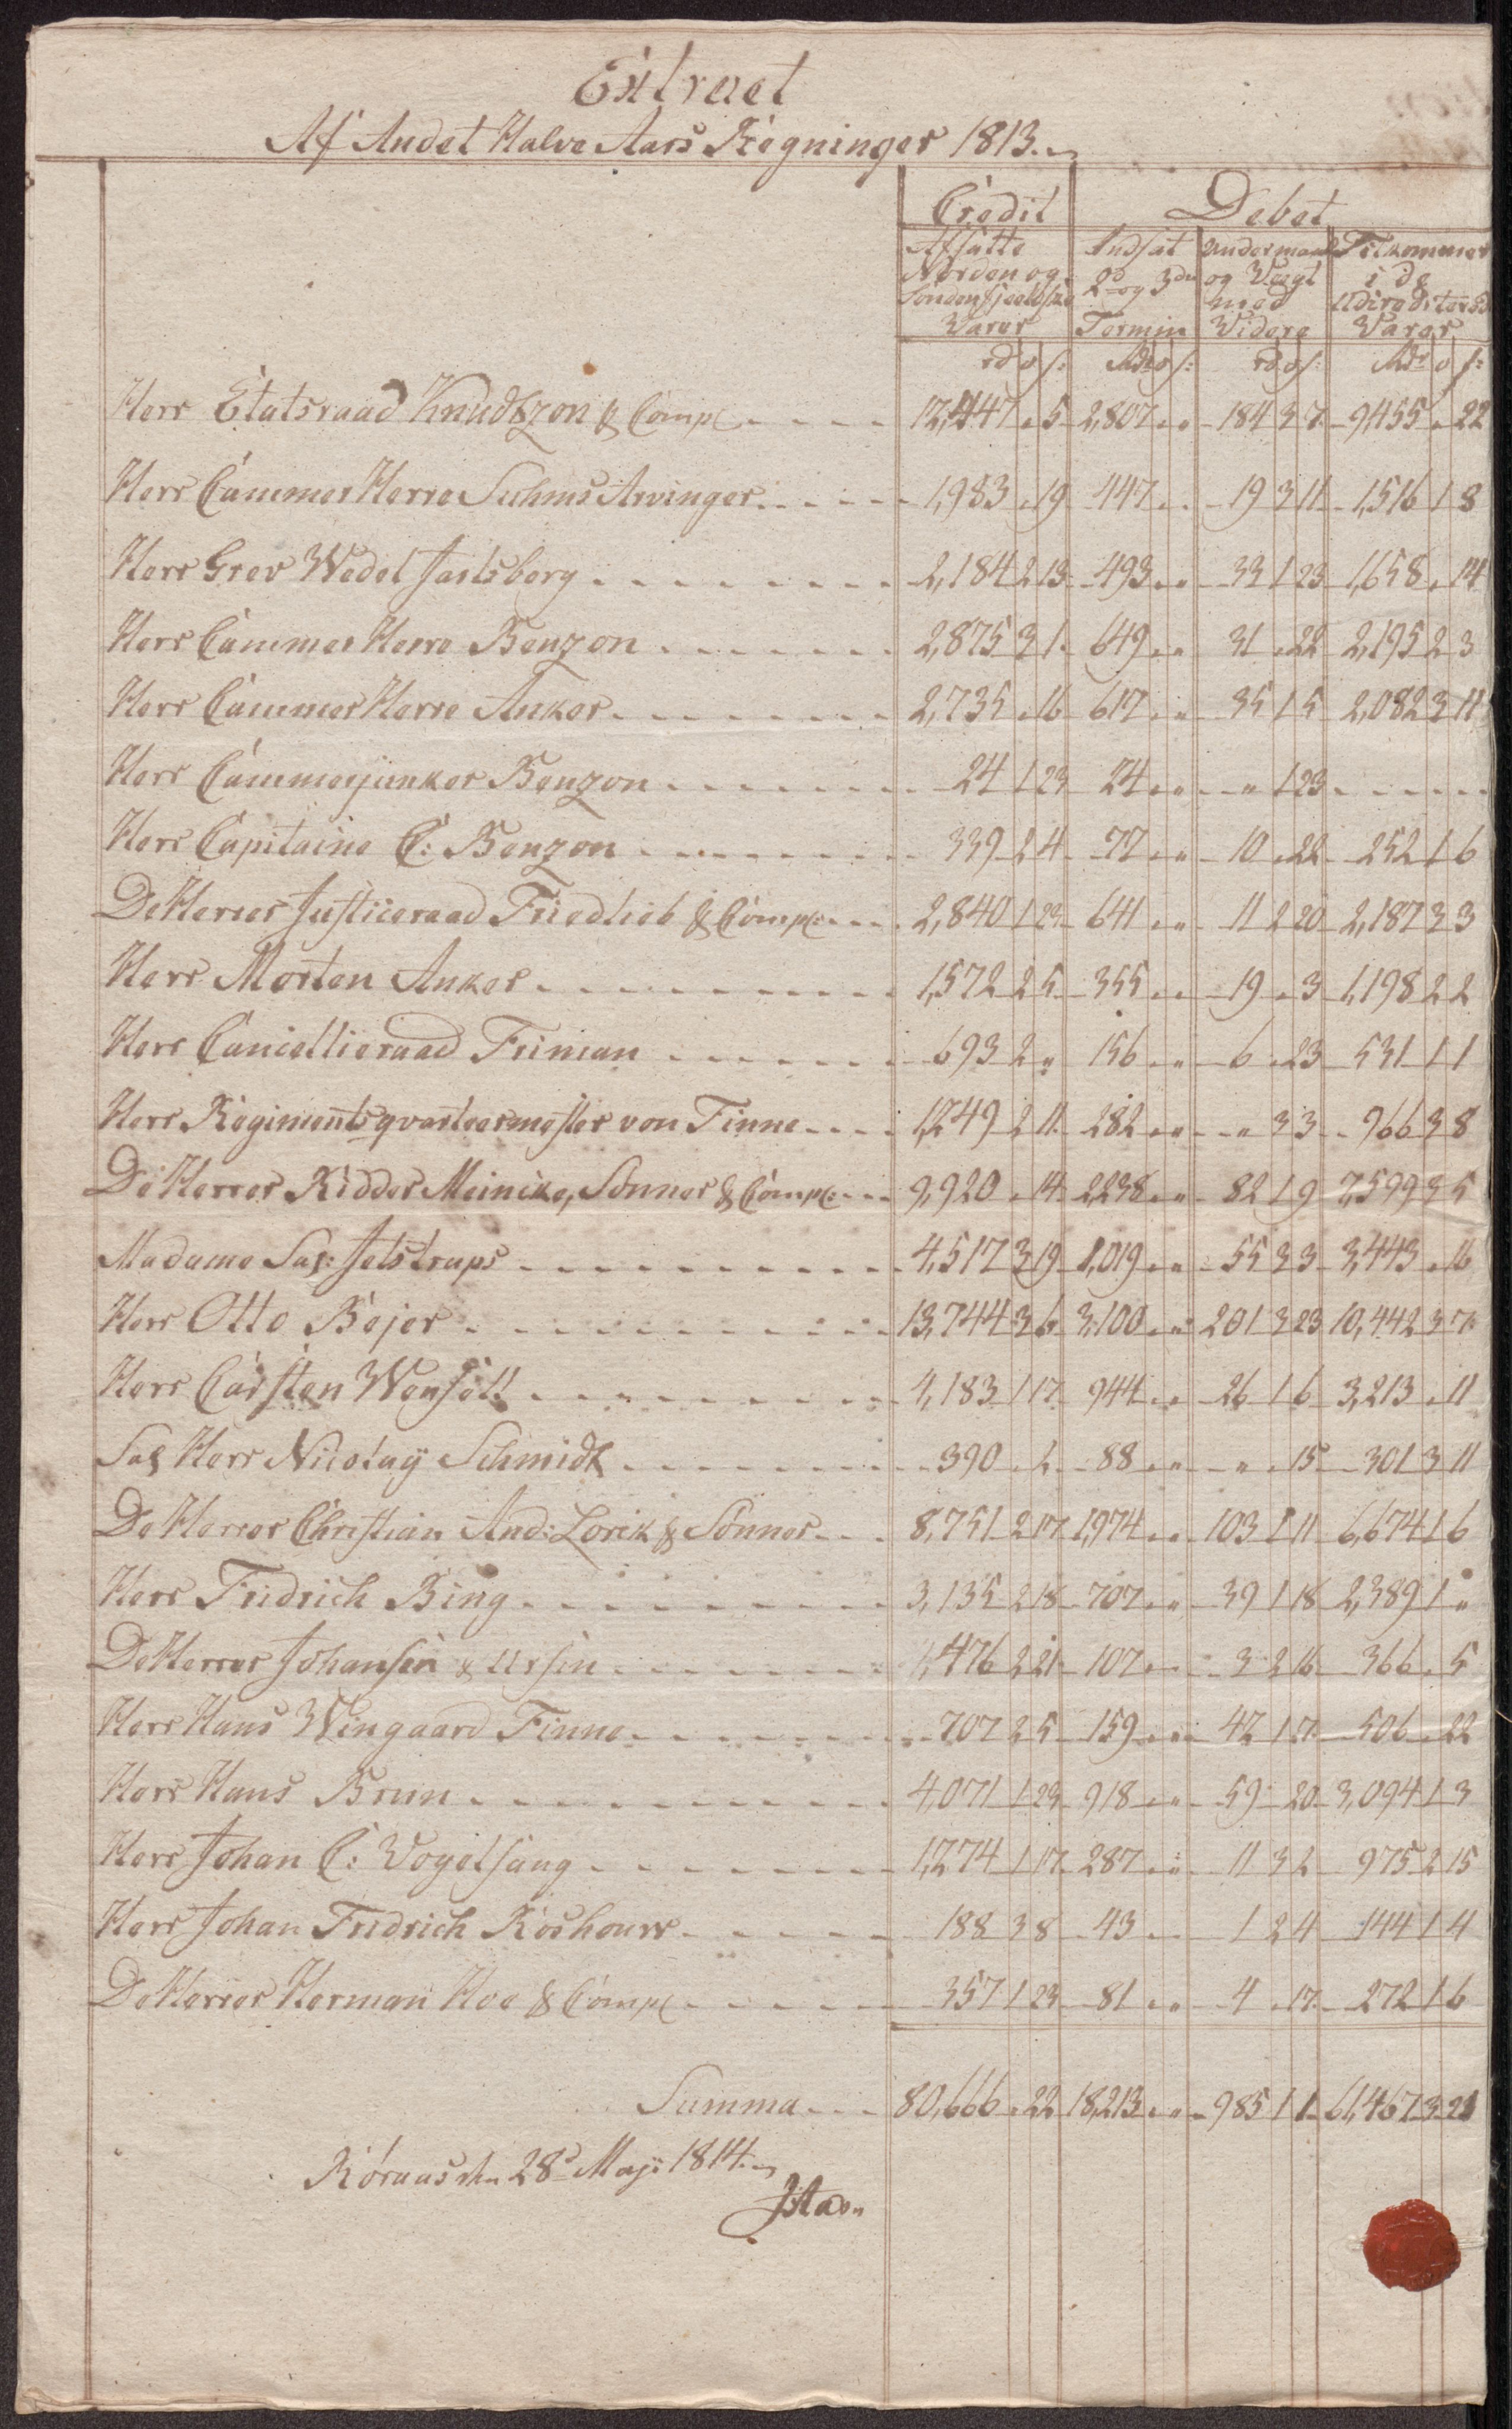 Extract
Af Andet Halve Aars Regninger 1813.
Credit Debet
Afsatte Indsat Undermaal Tilkommer
Norden og 2d og 3die og Vægt i de
Søndenfjeldske med Udirediterede
Varer Termin Videre Varer
rd o s: Rdr o s: rd o s: Rdr o s:
Herr Etatsraad Knudtzon & Comp: 12,447 " 5 2,807 " " 184 3 7 9,455 " 22
Herr CammerHerre Suhms Arvinger 1,983 " 19 447 " " 19 3 11 1,516 1 8
Herr Grev Wedel Jarlsberg 2,184 2 13 493 " " 33 1 23 1,658 " 14
Herr CammerHerre Benzon 2,875 3 1 649 " " 31 " 22 2,195 2 3
Herr CammerHerre Anker 2,735 " 16 617 " " 35 1 5 2,082 3 11
Herr Cammerjunker Benzon 24 1 23 24 " " " 1 23
Herr Capitaine C: Benzon 339 2 4 77 " " 10 " 22 252 1 6
De Herrer Justiceraad Friedlieb & Comp: 2,840 1 23 641 " " 11 2 20 2,187 3 3
Herr Morten Anker 1,572 2 5 355 " " 19 " 3 1,198 2 2
Herr Cancellieraad Friman 693 2 " 156 " " 6 " 23 531 1 1
Herr Regimentsqvarteermester von Finne 1,249 2 11 282 " " " 3 3 966 3 8
De Herrer Ridder Meincke, Sønner & Comp: 9,920 " 14 2,238 " " 82 1 9 7,599 3 5
Madame Sal: Jelstrups 4,517 3 19 1,019 " " 55 3 3 3,443 " 16
Herr Otto Bejer 13,744 3 6 3,100 " " 201 3 23 10,442 3 7
Herr Carsten Wensell 4,183 1 17 944 " " 26 1 6 3,213 " 11
Sal Herr Nicolay Schmidt 390 " 2 88 " " " " 15 301 3 11
De Herrer Christian And: Lorck & Sønner 8,751 2 17 1,974 " " 103 1 11 6,674 1 6
Herr Fridrich Bing 3,135 2 18 707 " " 39 1 18 2,389 1 "
De Herrer Johansen & Ursin 476 2 21 107 " " 3 2 16 366 " 5
Herr Hans Wingaard Finne 707 2 5 159 " " 42 1 7 506 " 22
Herr Hans Brun 4,071 1 23 918 " " 59 " 20 3,094 1 3
Herr Johan C: Vogelsang 1,274 1 17 287 " " 11 3 2 975 2 15
Herr Johan Fridrich Roshouw 188 3 8 43 " " 1 2 4 144 1 4
De Herrer Herman Hoe & Comp: 357 1 23 81 " " 4 " 17 272 1 6
Summa 80,666 " 22 18,213 " " 985 1 1 61,467 3 21
Röraas den 28d Maji 1814.